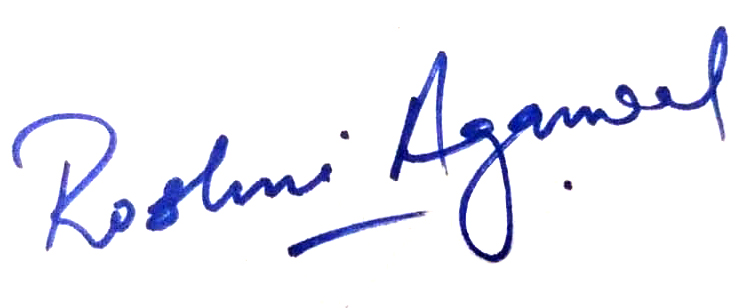 Roshni Agarwal